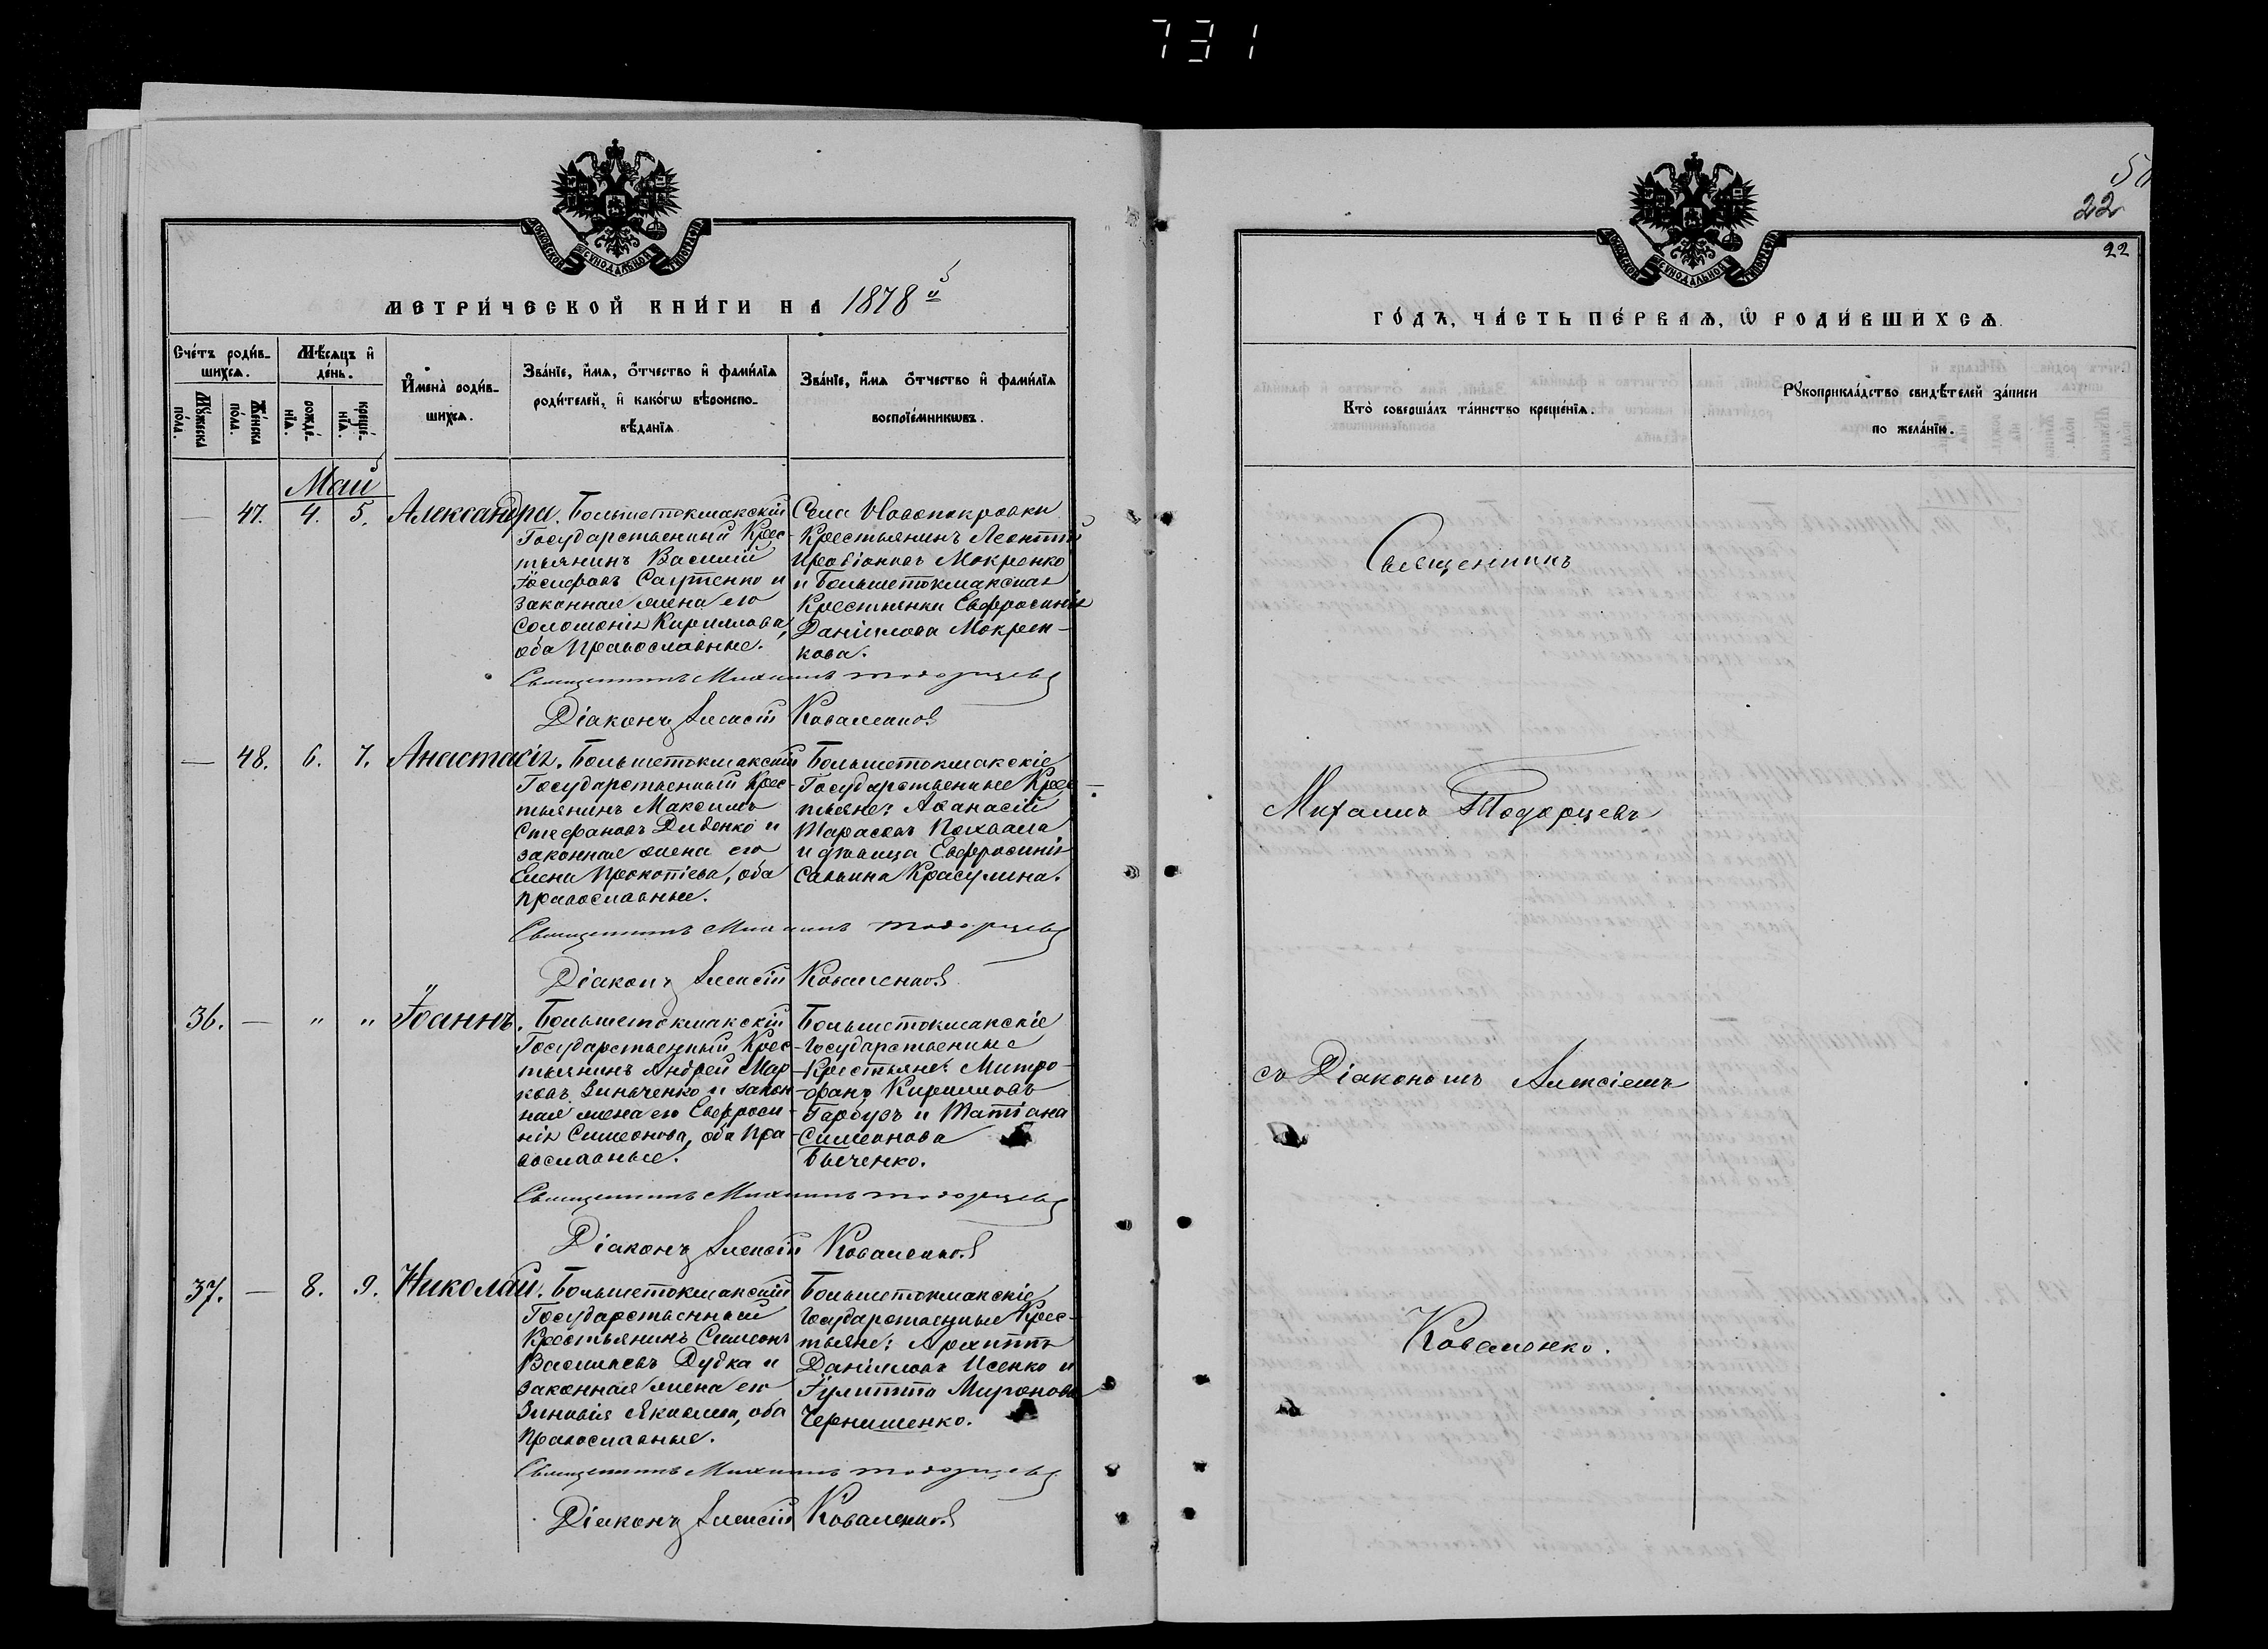 731
50
22
22
МОСКОВСКОЙ СѴНОДАЛЬНОЙ ТИПОГРАФІИ
МЕТРИЧЕСКОЙ КНИГИ НА 1878й
Счетъ родив-
шихся.
Мужеска пола.
Женска пола.
Мѣсяцъ и
день.
рожде-
нія.
креще-
нія.
Имена родив-
шихся.
Званіе, имя, отчество и фамилія
родителей, и какогѡ вѣроиспо-
вѣданія
Званіе, имя отчество и фамилія
воспріемникѡвъ.
Май
— 47. 4. 5. Александра.
Большетокмакскій
Государственный Крес-
тьянинъ Василій
Іосифовъ и
законная жена его
Соломонія Кириллова,
оба Православные.
Села Новопокровки
Крестьянинъ Леонтій
Иродіоновъ Мокренко
и Большетокмакская
Крестьянка Евфросинія
Даніилова Мокрен-
кова.
Священникъ Михаилъ Тодорцевъ
Діаконъ Алексій Коваленков
— 48. 6. 7. Анастасія.
Большетокмакскій
Государственный Крес-
тьянинъ Максимъ
Стефановъ Диденко и
законная жена его
Елена Прокопіева, оба
православные.
Большетокмакскіе
Государственные Крес-
тьяне: Аѳанасій
Тарасовъ
и дѣвица Евфросинія
Саввина Красулина.
Священникъ Михаилъ Тодорцевъ
Діаконъ Алексій Коваленков
36. — " " Іоаннъ.
Большетокмакскій
Государственный Крес-
тьянинъ Андрей Мар-
ковъ Зинченко и закон-
ная жена его Евфроси-
нія Симеонова, оба Пра-
вославные.
Большетокмакскіе
Государственные
Крестьяне: Митро-
фанъ Кирилловъ
Гарбузъ и Татіана
Симеонова
Быченко.
Священникъ Михаилъ Тодорцевъ
Діаконъ Алексій Коваленков
37. — 8. 9. Николай.
Большетокмакскій
Государственный
Крестьянинъ Симеонъ
Васильевъ Дудка и
законная жена его
Зиновія Яковлева, оба
Православные.
Большетокмакскіе
Государственные Крес-
тьяне:
Даніиловъ Исенко и
Іулитта Миронова
Чернишенко.
Священникъ Михаилъ Тодорцевъ
Діаконъ Алексій Коваленков
МОСКОВСКОЙ СѴНОДАЛЬНОЙ ТИПОГРАФІИ
ГОДЪ, ЧАСТЬ ПЕРВАЯ, Ѡ РОДИВШИХСЯ
Кто совершалъ таинство крещенія.
Рукоприкладство свидѣтелей записи
по желанію.
Священникъ
Михаилъ Тодорцевъ
съ Діакономъ Алексіемъ
Коваленко.